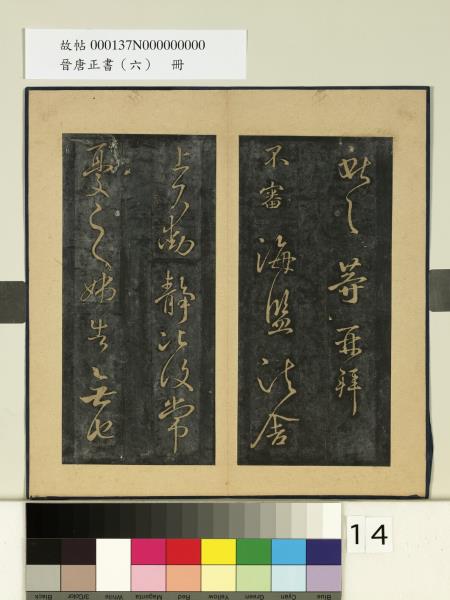 故帖 000137N000000000
晉唐正書（六） 冊
獻之等再拜
不審海鹽諸舍
上下動靜比復常
憂之姊告無他
14
Black
3/Color
White
Magenta
Red
Yellow
Green
Cyan
Blue